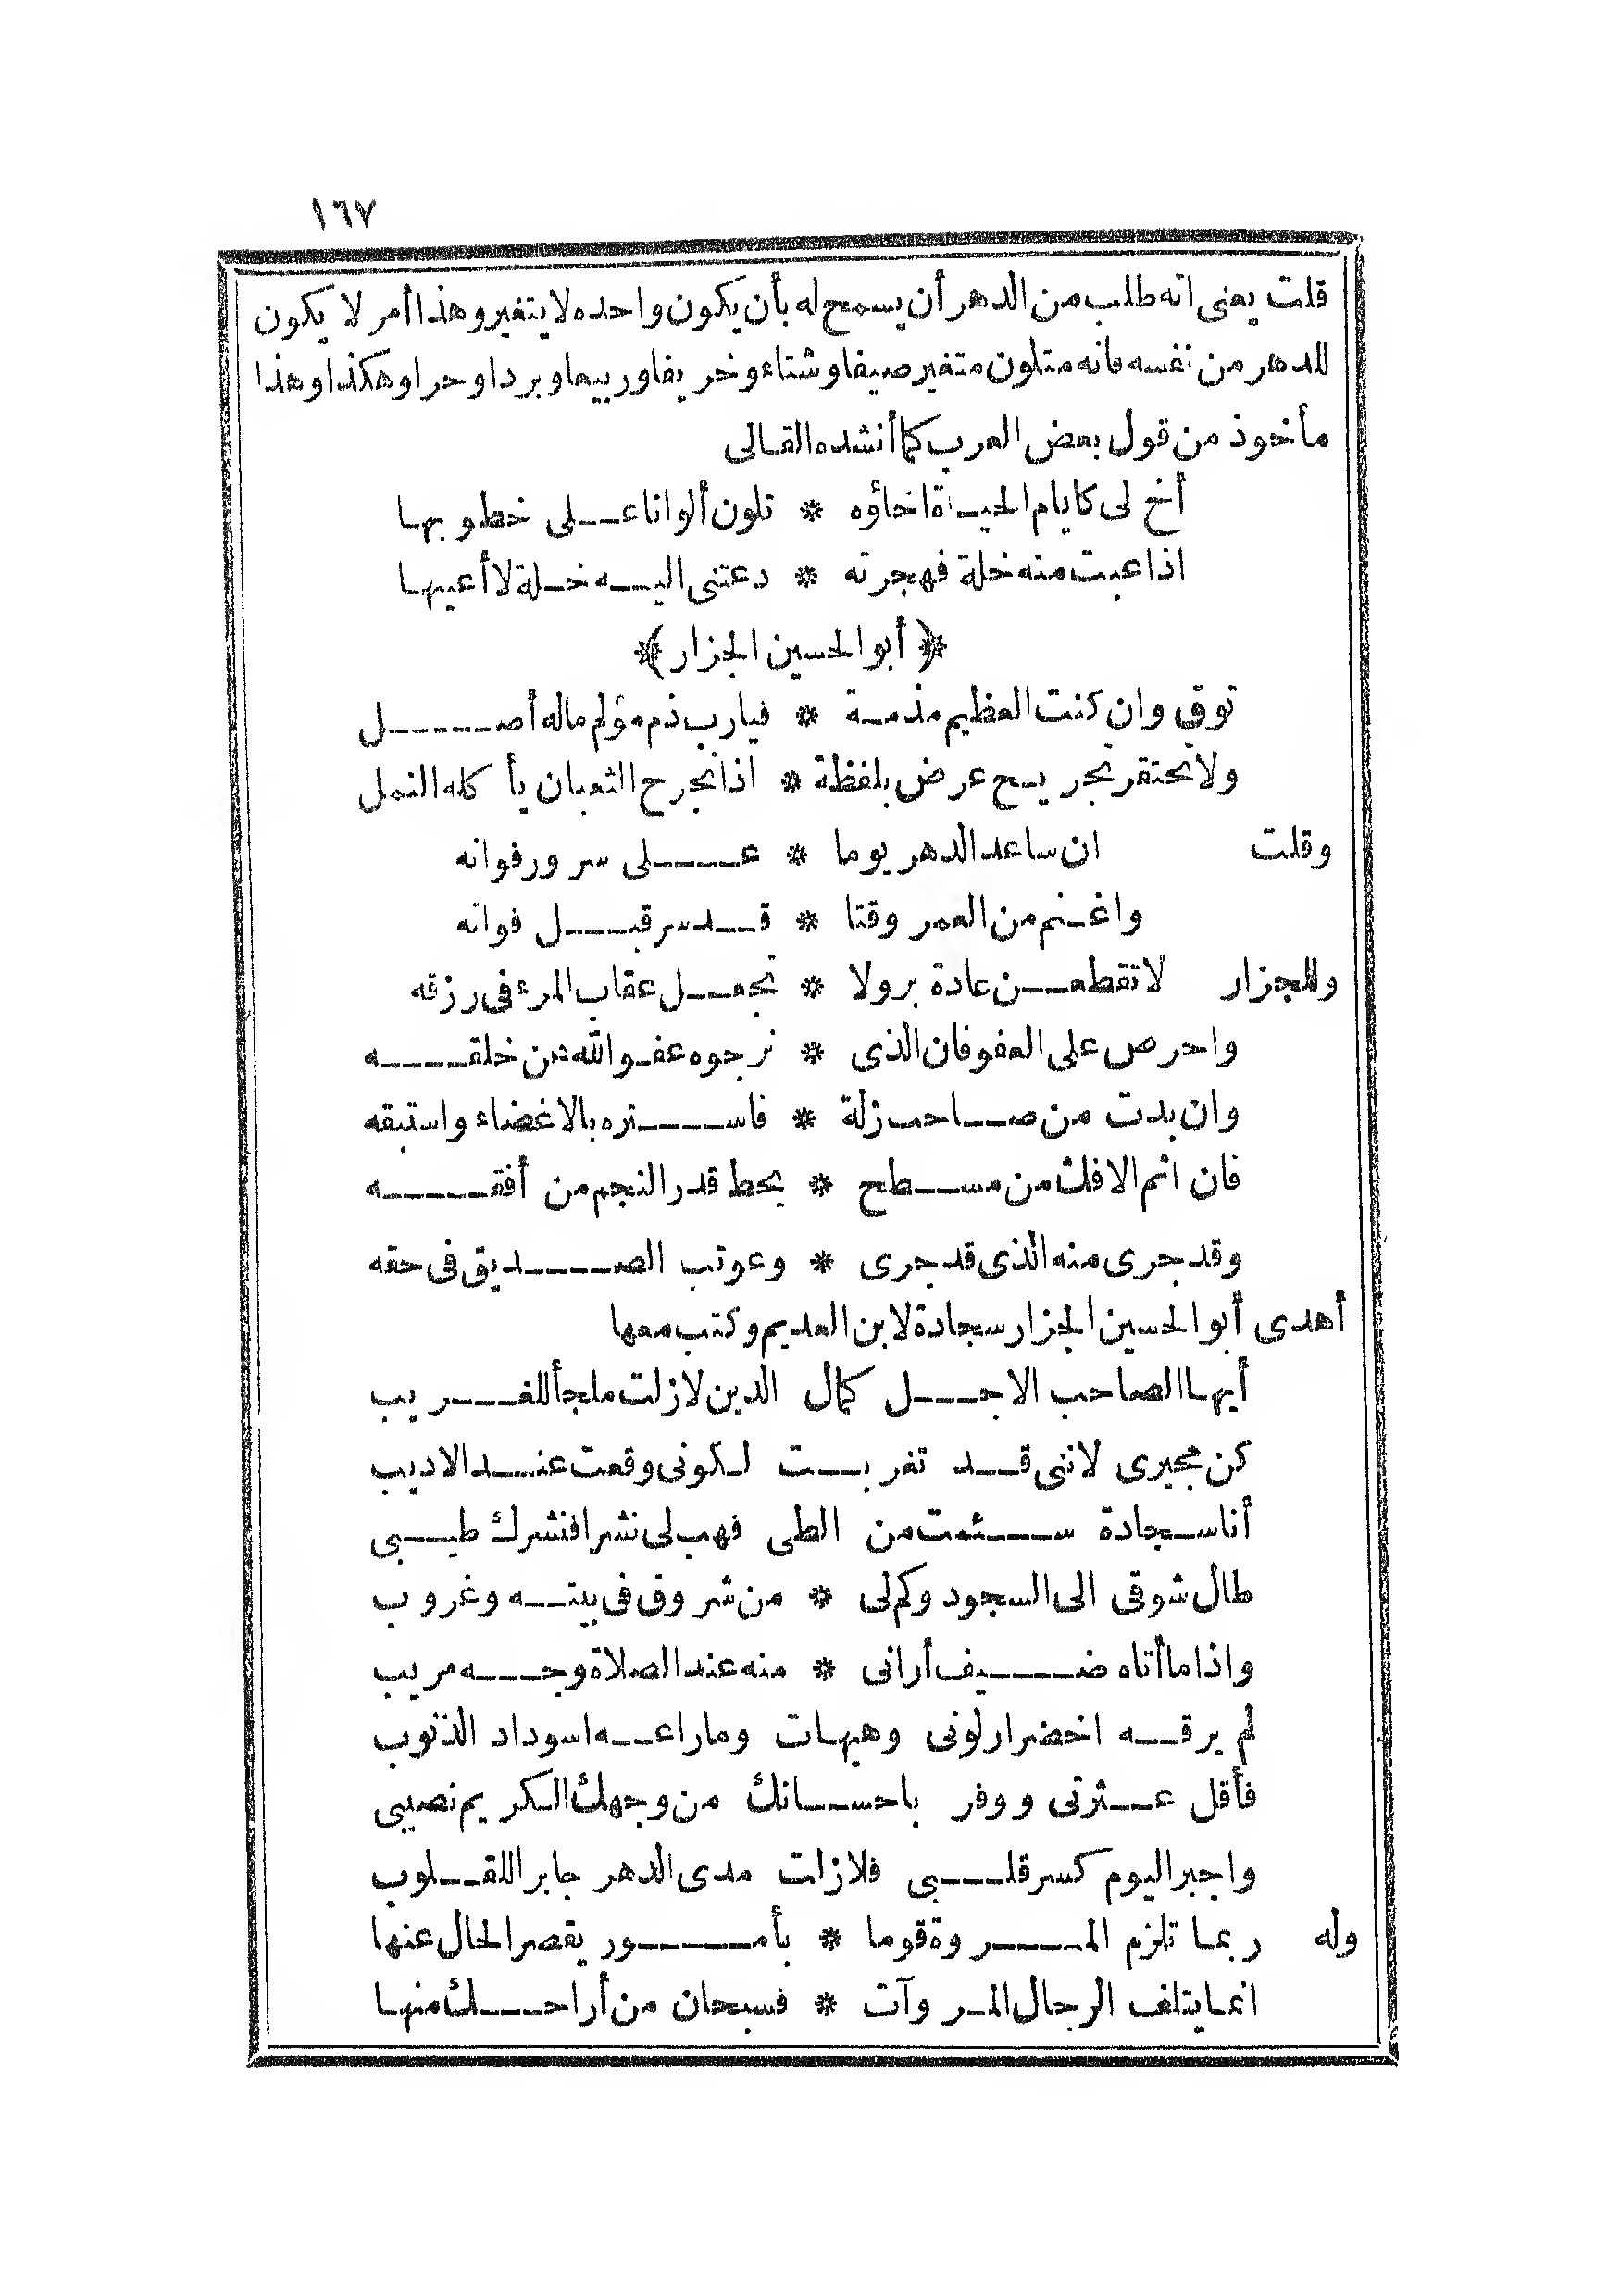 ١٦٧
قلت يعنى انه طلب من الدهر أن يسمح له بأن يكون واحده لا يتغير وهذا أمر لا يكون
للدهر من نفسه فانه متلون متغير صيفا وشتاء وخريفا وربيعا وبردا وحرا وهكذا وهذا
مأخوذ من قول بعض العرب كما أنشده القالى
أخ لى كايام الحياة اخاؤه * تلون ألوانا على خطوبها
اذا عبت منه خلة فهجرته * دعتنى اليه خلة لا أعيبها
﴿أبو الحسين الجزار﴾
توق وان كنت العظيم مذمة * فيارب ذم مؤلم ماله أصل
ولا تحتقر تجريح عرض بلفظة * اذا تجرح الثعبان يأكله النمل
وقلت ان ساعد الدهر يوما * على سرور فوانه
واغنم من العمر وقتا * قد سر قبل فواته
وللجزار لا تقطعن عادة بر ولا * تجعل عقاب المرء فى رزقه
واحرص على العفو فان الذى * نرجوه عفو الله عن خلقه
وان بدت من صاحب زلة * فاستره بالاغضاء واستبقه
فان اثم الافك من مسطح * يحط قدر النجم من أفقه
وقد جرى منه الذى قد جرى * وعوتب الصديق فى حقه
أهدى أبو الحسين الجزار سجادة لابن العديم وكتب معها
أيها الصاحب الاجل كمال الدين لا زلت ملجأ للغريب
كن مجيرى لاننى قد تغربت لكونى وقعت عند الاديب
أنا سجادة سئمت من الطى فهب لى نشرا فنشرك طيبى
طال شوقى الى السجود وكم لى * من شروق فى بيته وغروب
واذا ما أتاه ضيف أرانى * منه عند الصلاة وجه مريب
لم يرقه اخضرار لونى وهيهات وما راعه اسوداد الذنوب
فأقل عثرتى ووفر باحسانك من وجهك الكريم نصيبى
واجبر اليوم كسر قلبى فلا زلت مدى الدهر جابرا للقلوب
وله ربما تلزم المروة قوما * بأمور يقصر الحال عنها
انما يتلف الرجال المروآت * فسبحان من أراحك منها